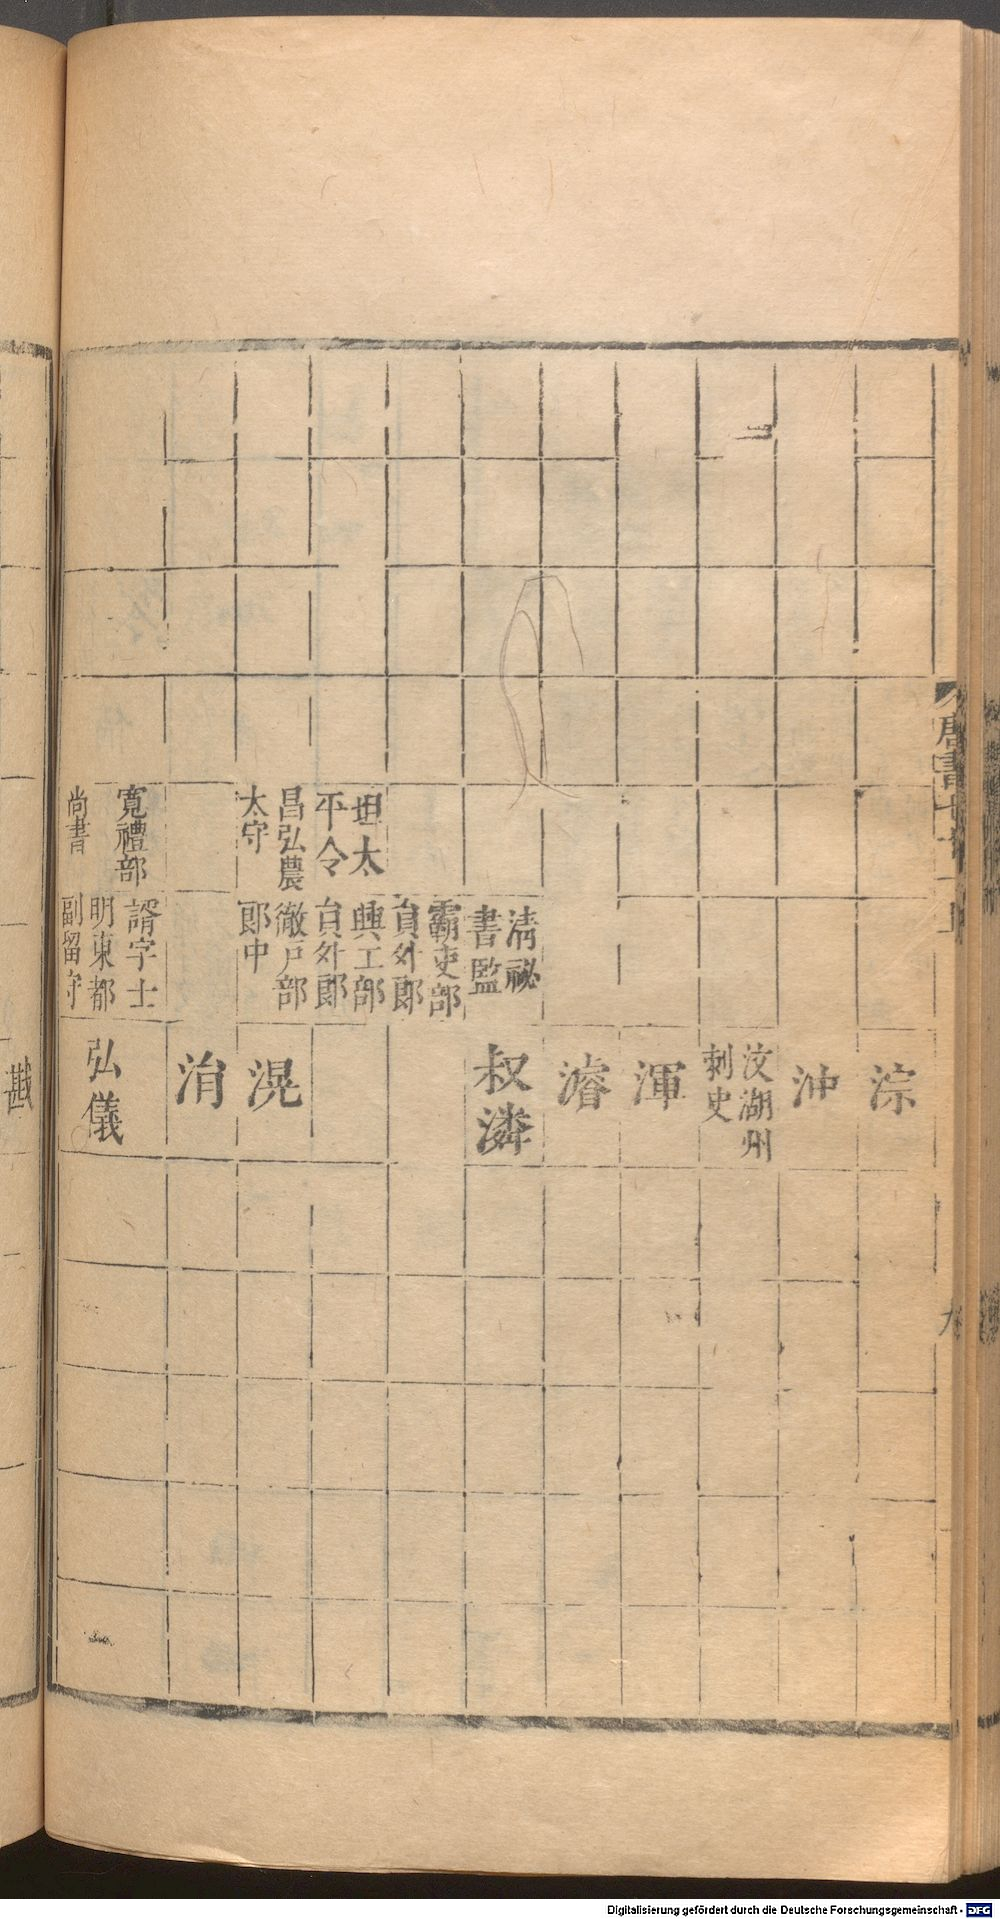 淙
沖
汶湖州
刺史
渾
濬
清祕
書監
叔潾
霸吏部
員外郎
坦太
平令
興工部
員外郎
昌弘農
太守
徹戶部
郎中
滉
洧
寬禮部
尚書
諝字士
明東都
副留守
弘儀
唐書七
九
Digitalisierung gefördert durch die Deutsche Forschungsgemeinschaft - DFG